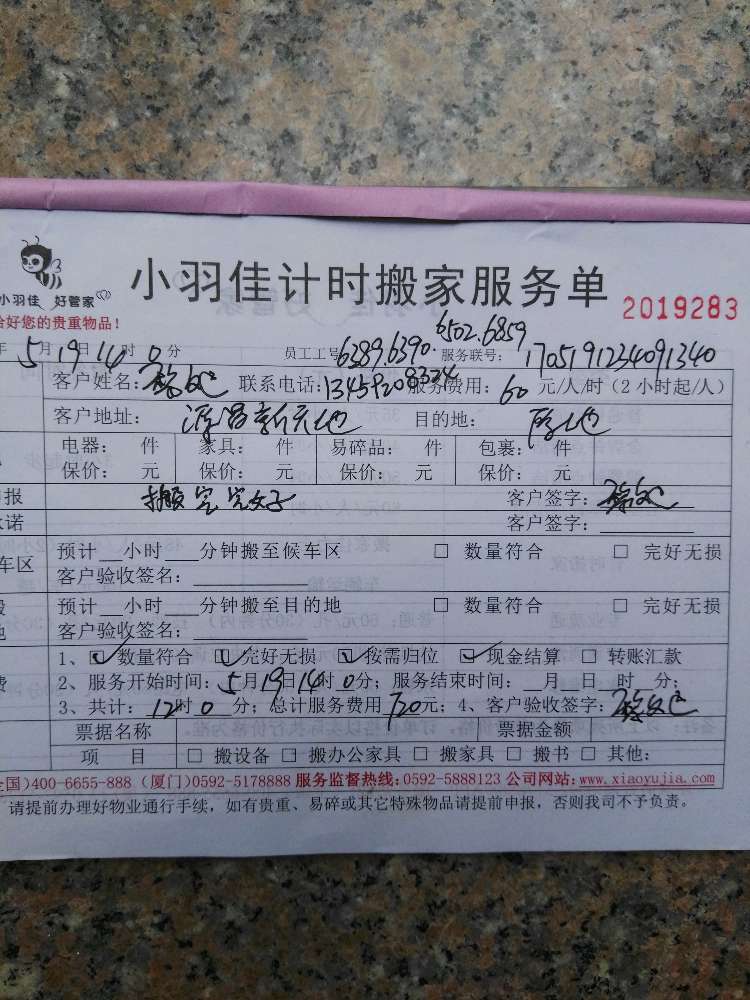 小羽佳 好管家
小羽佳计时搬家服务单
2019283
给好您的贵重物品！
年 5月19日14时0分 员工工号：6389.6390.6502.6859 服务联号：1705191234091340
客户姓名： 联系电话：13459208324 服务费用：60元/人/时（2小时起/人）
客户地址：新天地 目的地：
电器： 件 家具： 件 易碎品： 件 包裹： 件
保价： 元 保价： 元 保价： 元 保价： 元
报 搬完完好 客户签字：
诺 客户签字：
车区 预计 小时 分钟搬至候车区 □ 数量符合 □ 完好无损
客户验收签名：
预计 小时 分钟搬至目的地 □ 数量符合 □ 完好无损
地 客户验收签名：
1、☑ 数量符合 ☑ 完好无损 ☑ 按需归位 ☑ 现金结算 □ 转账汇款
费 2、服务开始时间：5月19日14时0分；服务结束时间： 月 日 时 分；
3、共计：12时0分；总计服务费用720元；4、客户验收签字：
票据名称 票据金额
项 目 □ 搬设备 □ 搬办公家具 □ 搬家具 □ 搬书 □ 其他：
全国)400-6655-888 (厦门)0592-5178888 服务监督热线:0592-5888123 公司网站:www.xiaoyujia.com
请提前办理好物业通行手续，如有贵重、易碎或其它特殊物品请提前申报，否则我司不予负责。